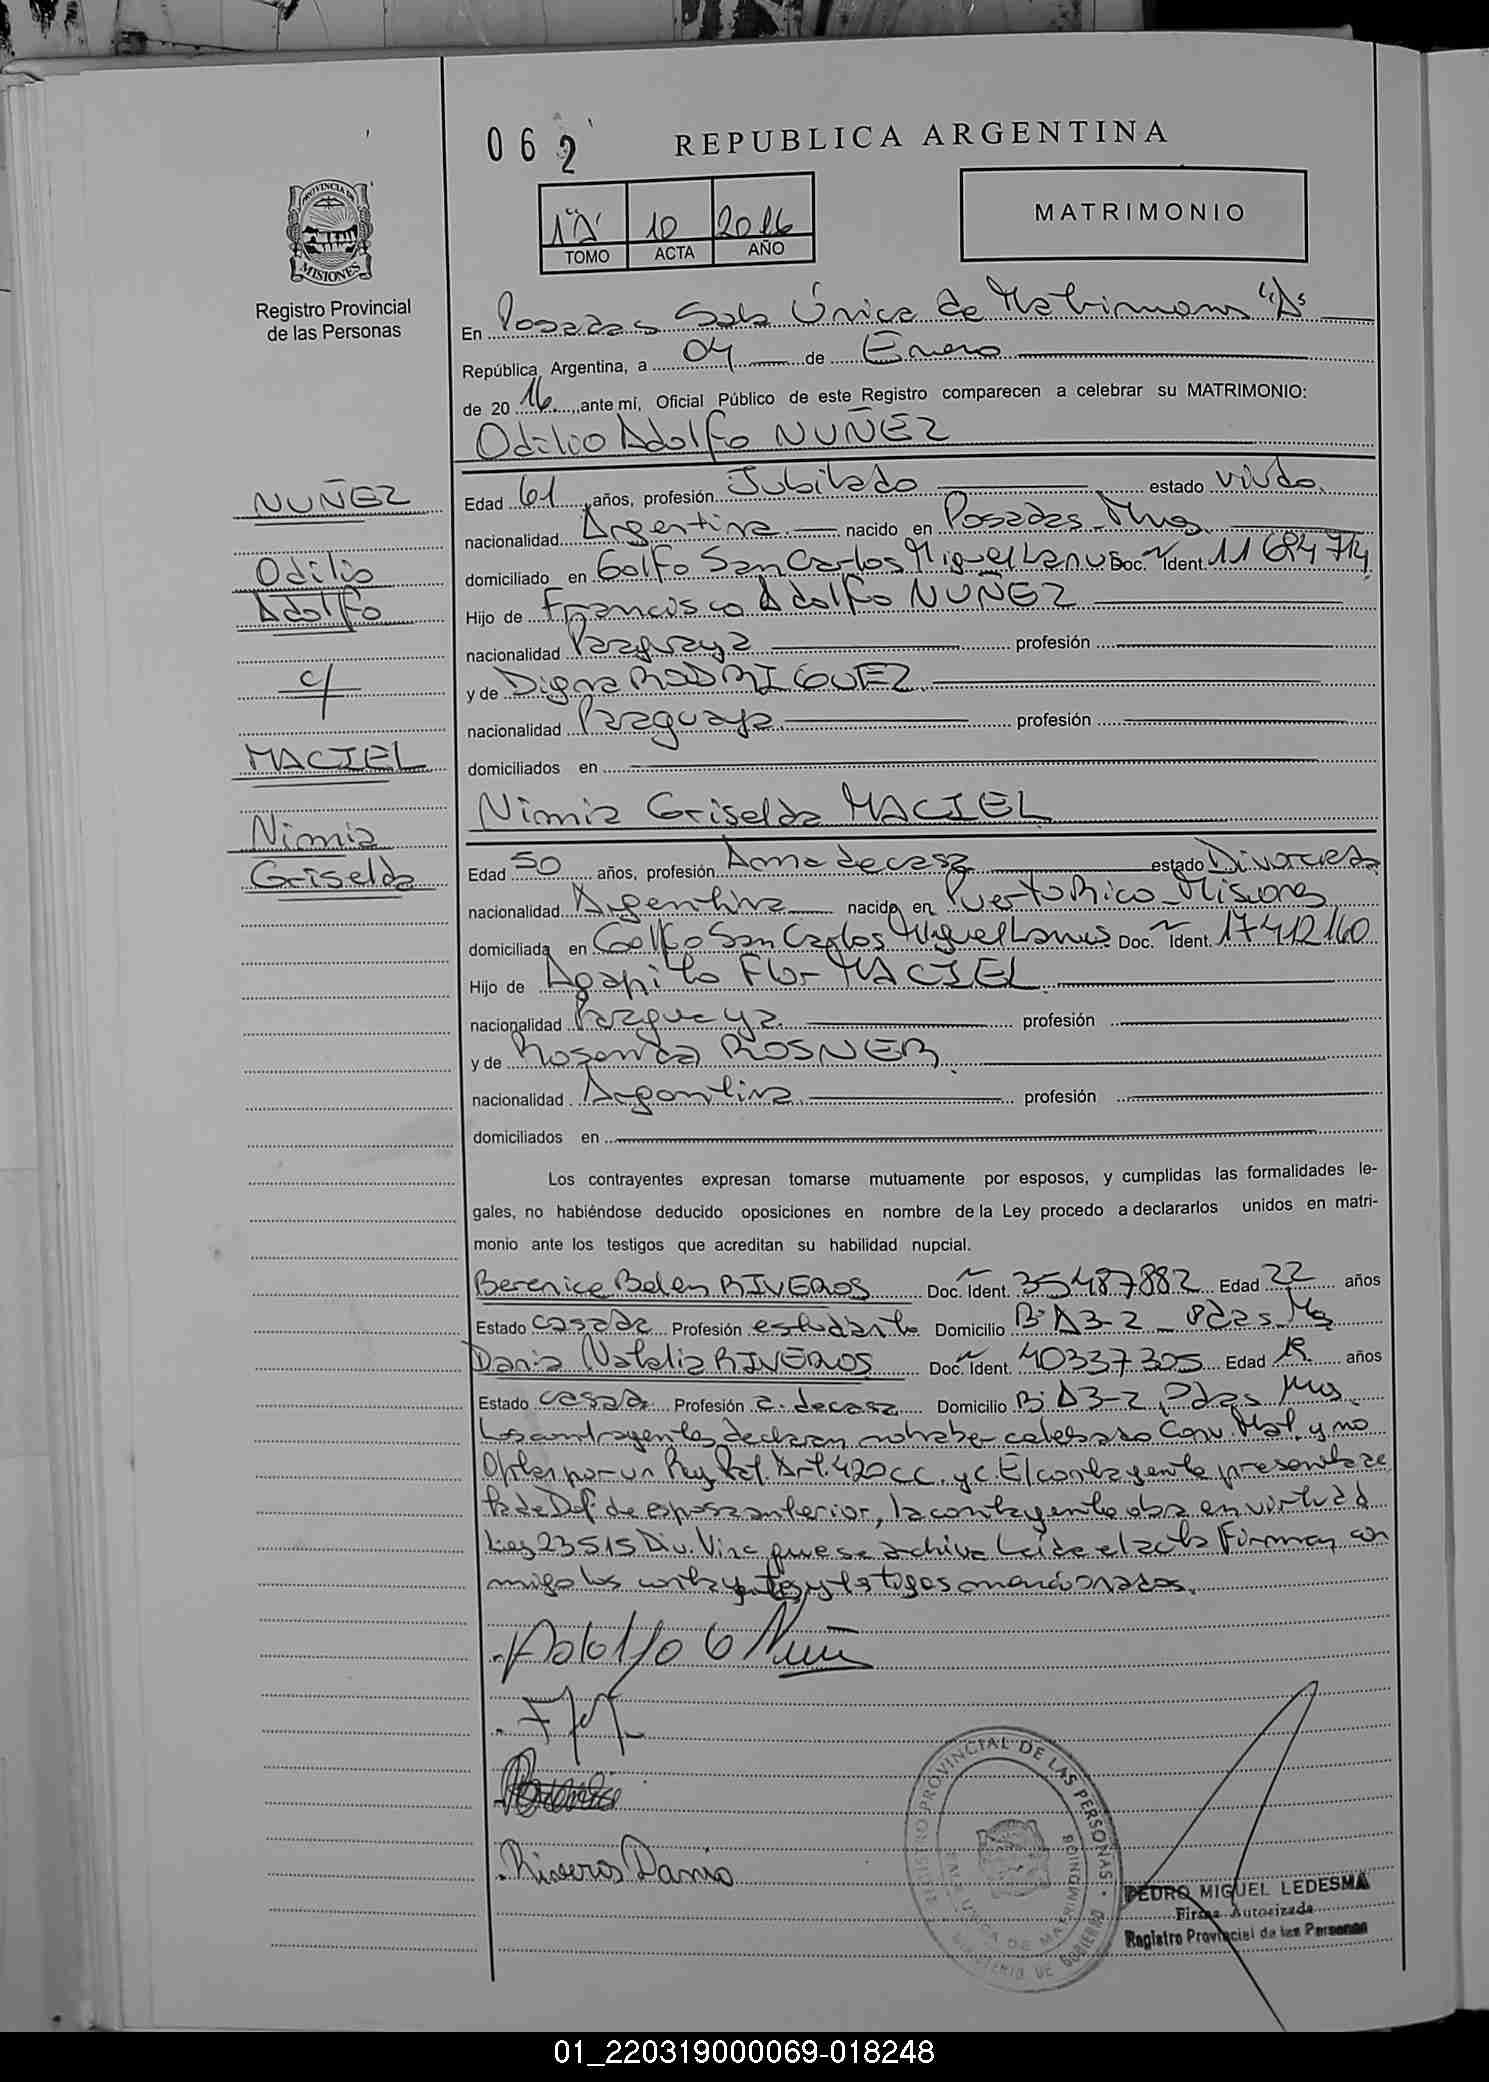 062
REPUBLICA ARGENTINA
1"A" 10 2016
TOMO ACTA AÑO
MATRIMONIO
PROVINCIA DE
MISIONES
Registro Provincial
de las Personas
En Posadas Sala Única de Matrimonios "A"
República Argentina, a 04 de Enero
de 20 16, ante mí, Oficial Público de este Registro comparecen a celebrar su MATRIMONIO:
Odilio Adolfo NUÑEZ
NUÑEZ
Odilio
Adolfo
c/
MACIEL
Nimia
Griselda
Edad 61 años, profesión Jubilado estado viudo.
nacionalidad Argentina nacido en Posadas Mnes
domiciliado en Golfo San Carlos Miguel Lanus Doc. Ident. 11684714
Hijo de Francisco Adolfo NUÑEZ
nacionalidad Paraguaya profesión
y de Digna RODRIGUEZ
nacionalidad Paraguaya profesión
domiciliados en
Nimia Griselda MACIEL
Edad 50 años, profesión Ama de casa estado Divorciada
nacionalidad Argentina nacido en Puerto Rico - Misiones
domiciliada en Golfo San Carlos Miguel Lanus Doc. Ident. 17412160
Hijo de Agapito Flor MACIEL
nacionalidad Paraguaya profesión
y de Rosenda ROSNER
nacionalidad Argentina profesión
domiciliados en
Los contrayentes expresan tomarse mutuamente por esposos, y cumplidas las formalidades le-
gales, no habiéndose deducido oposiciones en nombre de la Ley procedo a declararlos unidos en matri-
monio ante los testigos que acreditan su habilidad nupcial.
Berenice Belen RIVEROS Doc. Ident. 35487882 Edad 22 años
Estado casada Profesión estudiante Domicilio B° A3-2 - Pdas Ms
Dania Natalia RIVEROS Doc. Ident. 40337305 Edad 19 años
Estado casada Profesión a. de casa Domicilio B° A3-2, Pdas Mns
Los contrayentes declaran no haber celebrado Conv. Mat. y no
Optan por un Reg. Pat. Art. 420 CC. y C. El contrayente presenta ac
ta de Def. de esposa anterior, la contrayente obra en virtud
Ley 23515 Div. Vinc que se archiva Leida el acta Firman con
migo los contrayentes y testigos mencionados.
Adolfo O Nuñ
Riveros Dania
REGISTRO PROVINCIAL DE LAS PERSONAS
SALA UNICA DE MATRIMONIOS
MINISTERIO DE GOBIERNO
PEDRO MIGUEL LEDESMA
Firma Autorizada
Registro Provincial de las Personas
01_220319000069-018248